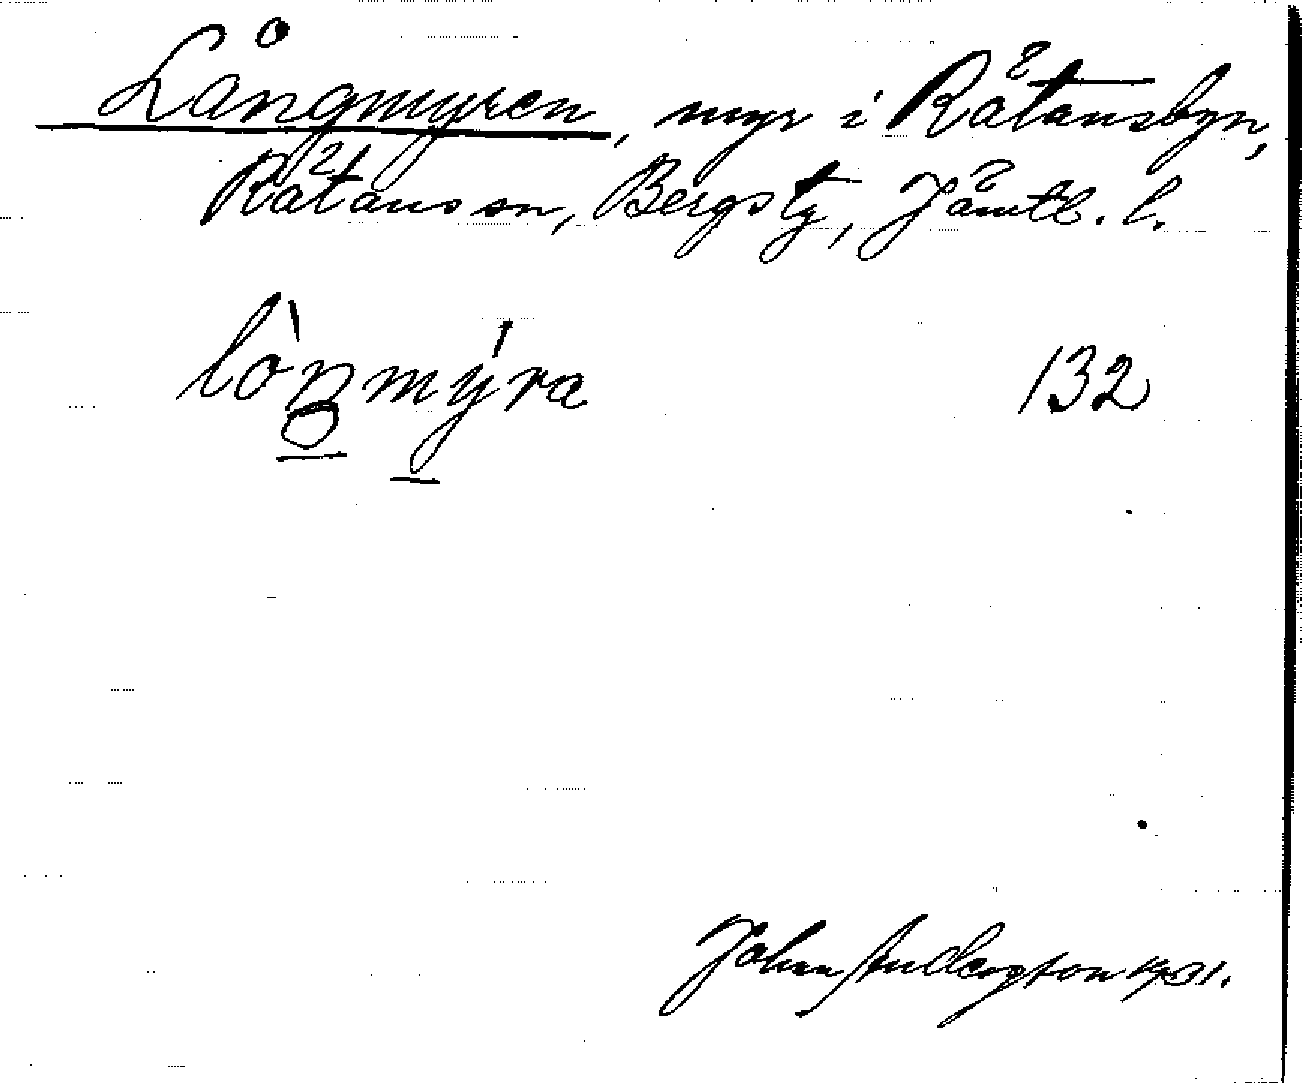 Långmyren, myr i Rätansbyn,
Rätans sn, Bergs tg, Jämtl. l.
lò̀ŋmýra 132
John Andersson 1931.